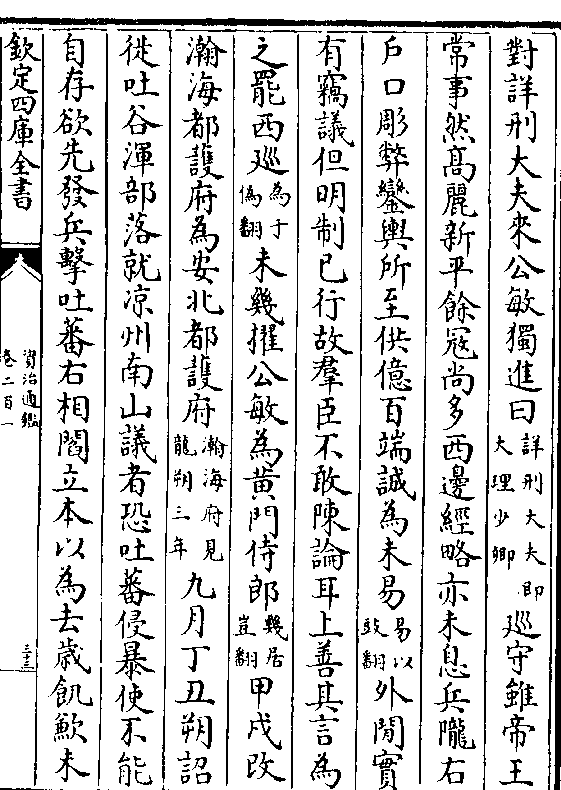 對詳刑大夫來公敏獨進曰詳刑大夫即大理少卿巡守雖帝王
常事然髙麗新平餘冦尚多西邊經略亦未息兵隴右
戶口彫弊鑾輿所至供億百端誠為未易易以豉翻外閒實
有竊議但明制已行故羣臣不敢陳論耳上善其言為
之罷西廵為于偽翻未幾擢公敏為黄門侍郎幾居豈翻甲戌改
瀚海都護府為安北都護府瀚海府見龍朔三年九月丁丑朔詔
徙吐谷渾部落就凉州南山議者恐吐蕃侵暴使不能
自存欲先發兵擊吐蕃右相閻立本以為去歳飢歉未
欽定四庫全書
資治通鑑
卷二百一
三十三